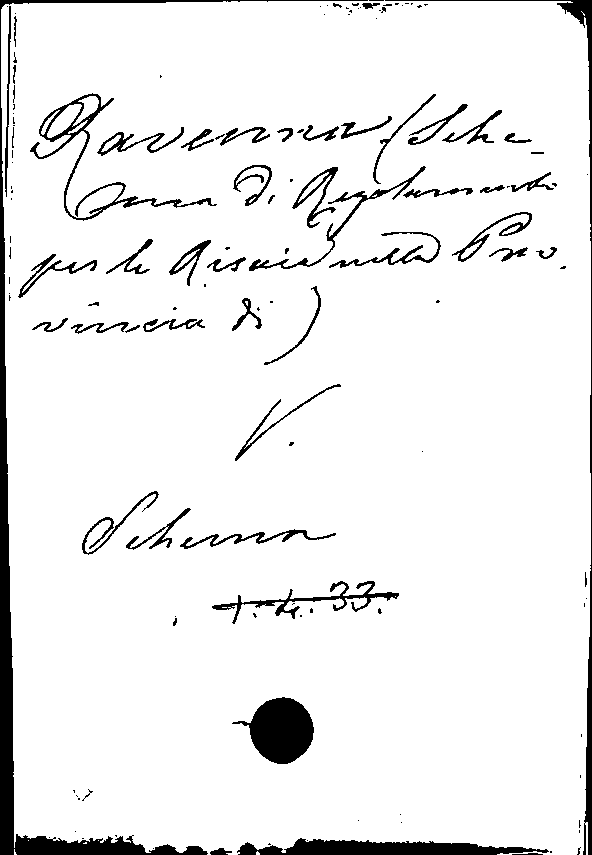 Ravenna (Sche-
ma di Regolamento
per le Risaie nella Pro-
vincia di)
V.
Schema
1.4.33.